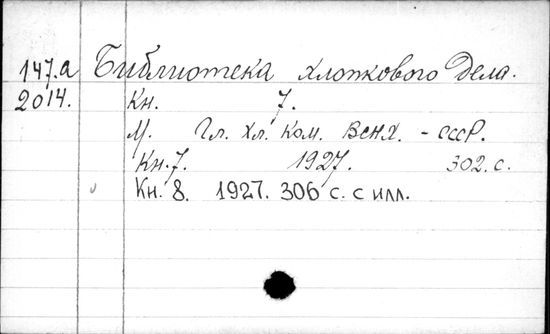 147.а Библиотека хлопкового дела.
2014. Кн. 7.
М. Гл. хл. ком. ВСНХ. - СССР.
Кн. 7. 1927. 302. с.
Кн. 8. 1927. 306 с. с илл.